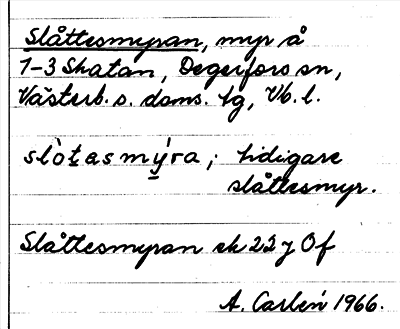 Slåttesmyran, myr å
1-3 Skatan, Degerfors sn,
Västerb. s. doms. tg, Vb. l.
slò̀tasmý̀ra; tidigare
slåttesmyr.
Slåttesmyran ek 22 j Of
A. Carlén 1966.